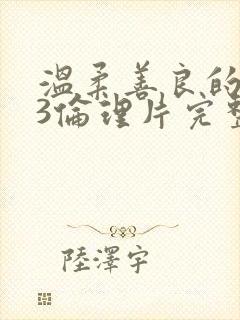 溫柔善良的
3倫理片完整
陸澤宇